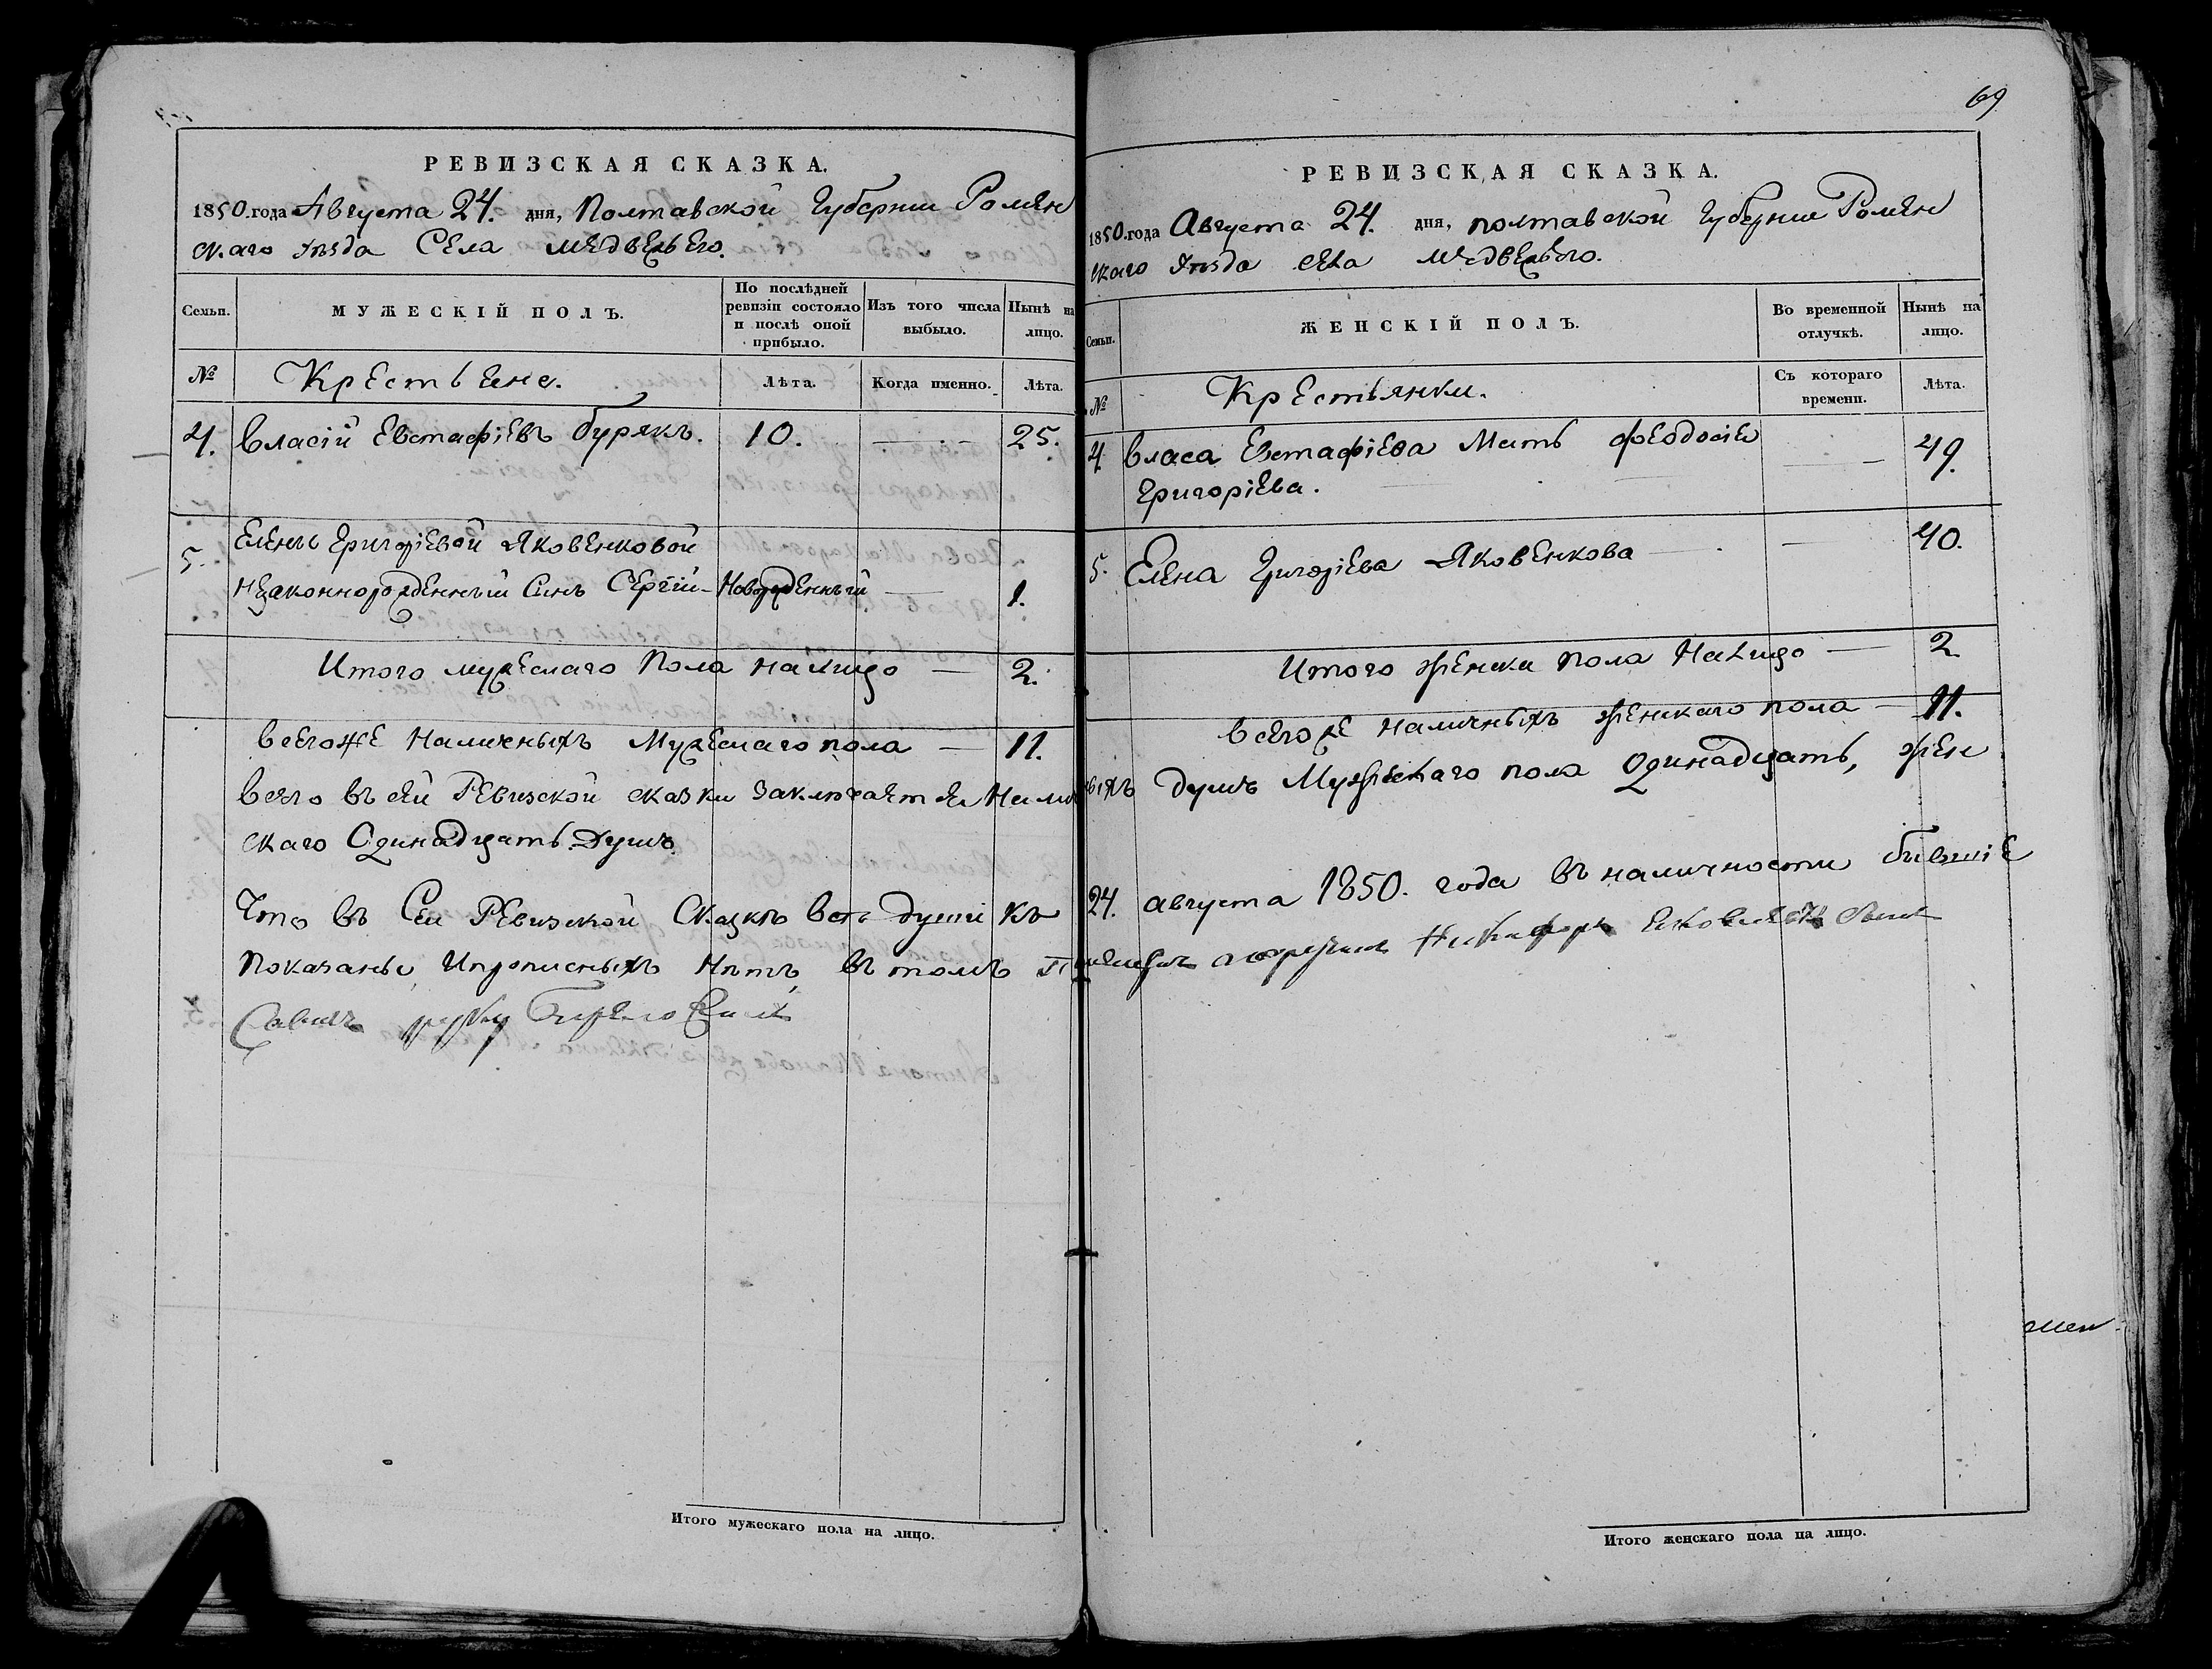 РЕВИЗСКАЯ СКАЗКА.
1850. года Августа 24. дня, Полтавской Губернии Ромен
скаго Уѣзда Села Медвежьего.
Семьи.
МУЖЕСКІЙ ПОЛЪ.
По послѣдней ревизіи состояло и послѣ оной прибыло.
Изъ того числа выбыло.
Нынѣ на лицо.
№
Крестьяне.
Лѣта.
Когда именно.
Лѣта.
4. Власій Евстафіевъ Бурякъ. 10. — 25.
5. Елены Григоріевой Яковенковой
незаконнорожденный Синъ Сергій - Новорожденный — 1.
Итого мужескаго Пола налицо — 2.
всегоже Наличныхъ Мужескаго пола — 11.
69
РЕВИЗСКАЯ СКАЗКА.
1850. года Августа 24. дня, полтавской Губернии Ромен
скаго Уѣзда села Медвежьего.
Семьи.
ЖЕНСКІЙ ПОЛЪ.
Во временной отлучкѣ.
Нынѣ на лицо.
№
Крестьянки.
Съ котораго времени.
Лѣта.
4. Власа Евстафіева Мать Феодосия — 49.
Григоріева.
5. Елена Григоріева Яковенкова — 40.
Итого женска пола Налицо — 2
всегоже наличныхъ женскаго пола — 11.
всего въ сей Ревизской сказки заключается Наличныхъ душъ Мужескаго пола Одинадцать, жен
скаго Одинадцать Душъ.
Что въ Сей Ревизской Сказкѣ всѣ души къ 24. августа 1850. года въ наличности бывшіе
показаны, Ипрописныхъ Нѣтъ, въ томъ Никифоръ
Савичъ руку
Итого мужескаго пола на лицо.
Итого женскаго пола на лицо.